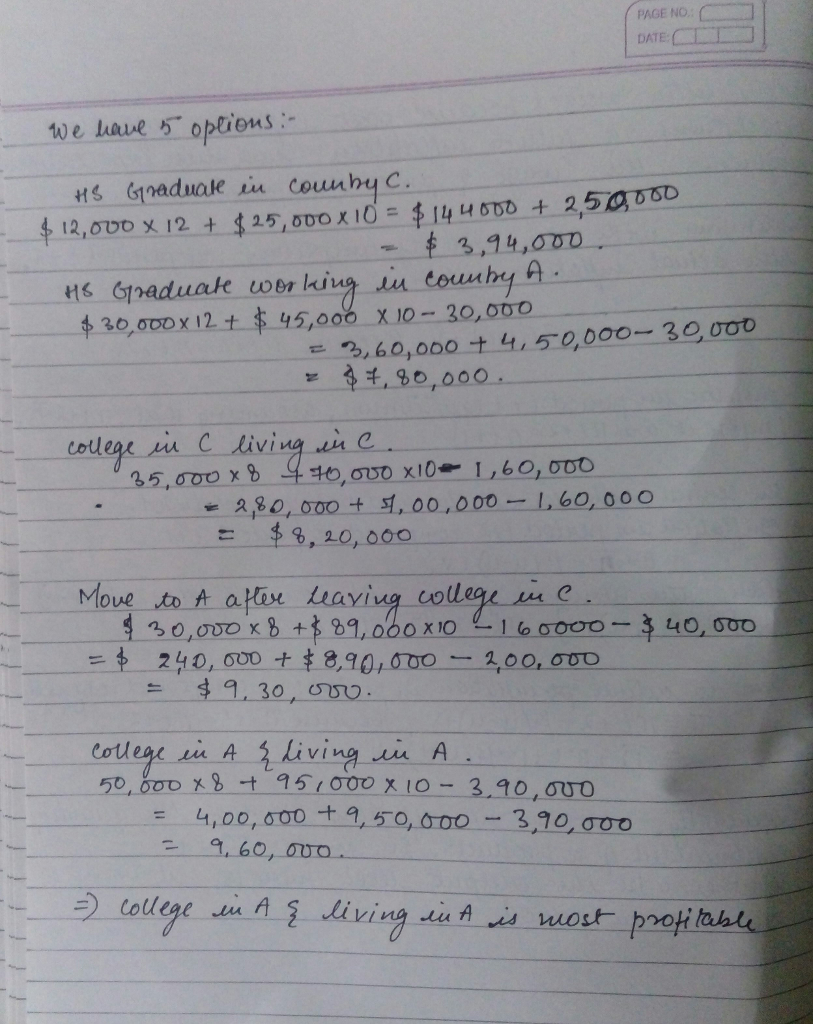 PAGE NO.:
DATE:
We have 5 options:-
HS Graduate in country C.
$ 12,000 x 12 + $ 25,000 x 10 = $ 144000 + 2,50,000
= $ 3,94,000.
HS Graduate working in country A.
$ 30,000 x 12 + $ 45,000 x 10 - 30,000
= 3,60,000 + 4,50,000 - 30,000
= $ 7,80,000.
college in C living in C.
35,000 x 8 + 70,000 x 10 - 1,60,000
= 2,80,000 + 7,00,000 - 1,60,000
= $ 8,20,000
Move to A after leaving college in C.
$ 30,000 x 8 + $ 89,000 x 10 - 160000 - $ 40,000
= $ 240,000 + $ 8,90,000 - 2,00,000
= $ 9,30,000.
college in A & living in A.
50,000 x 8 + 95,000 x 10 - 3,90,000
= 4,00,000 + 9,50,000 - 3,90,000
= 9,60,000.
⇒ college in A & living in A is most profitable